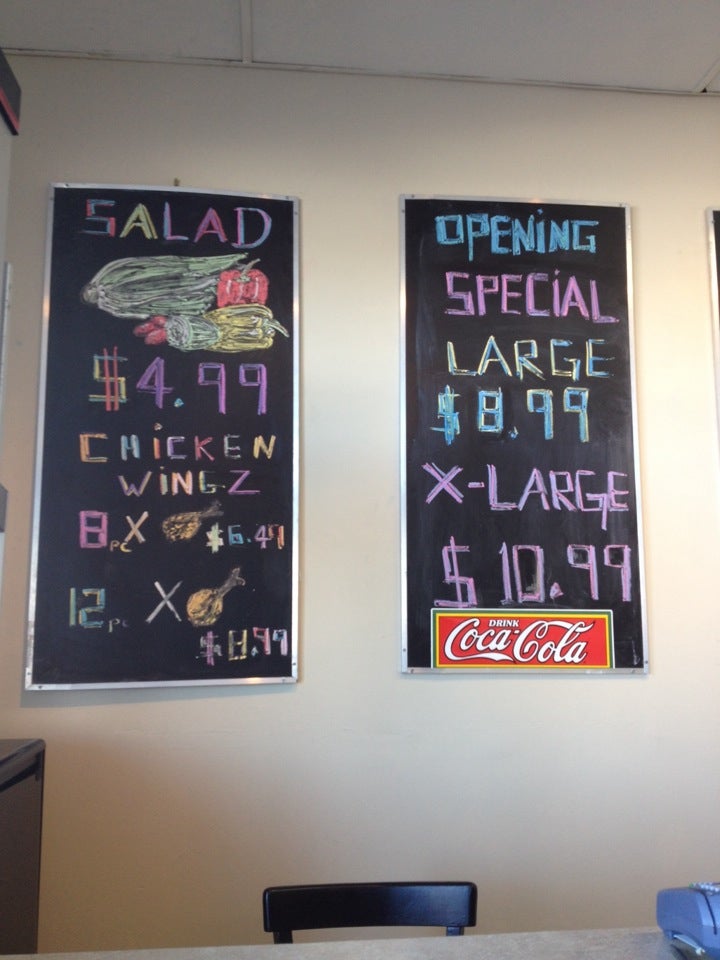 SALAD
$4.99
CHICKEN
WINGZ
8pc X $6.49
12pc X
$8.99
OPENING
SPECIAL
LARGE
$8.99
X-LARGE
$10.99
DRINK
Coca-Cola